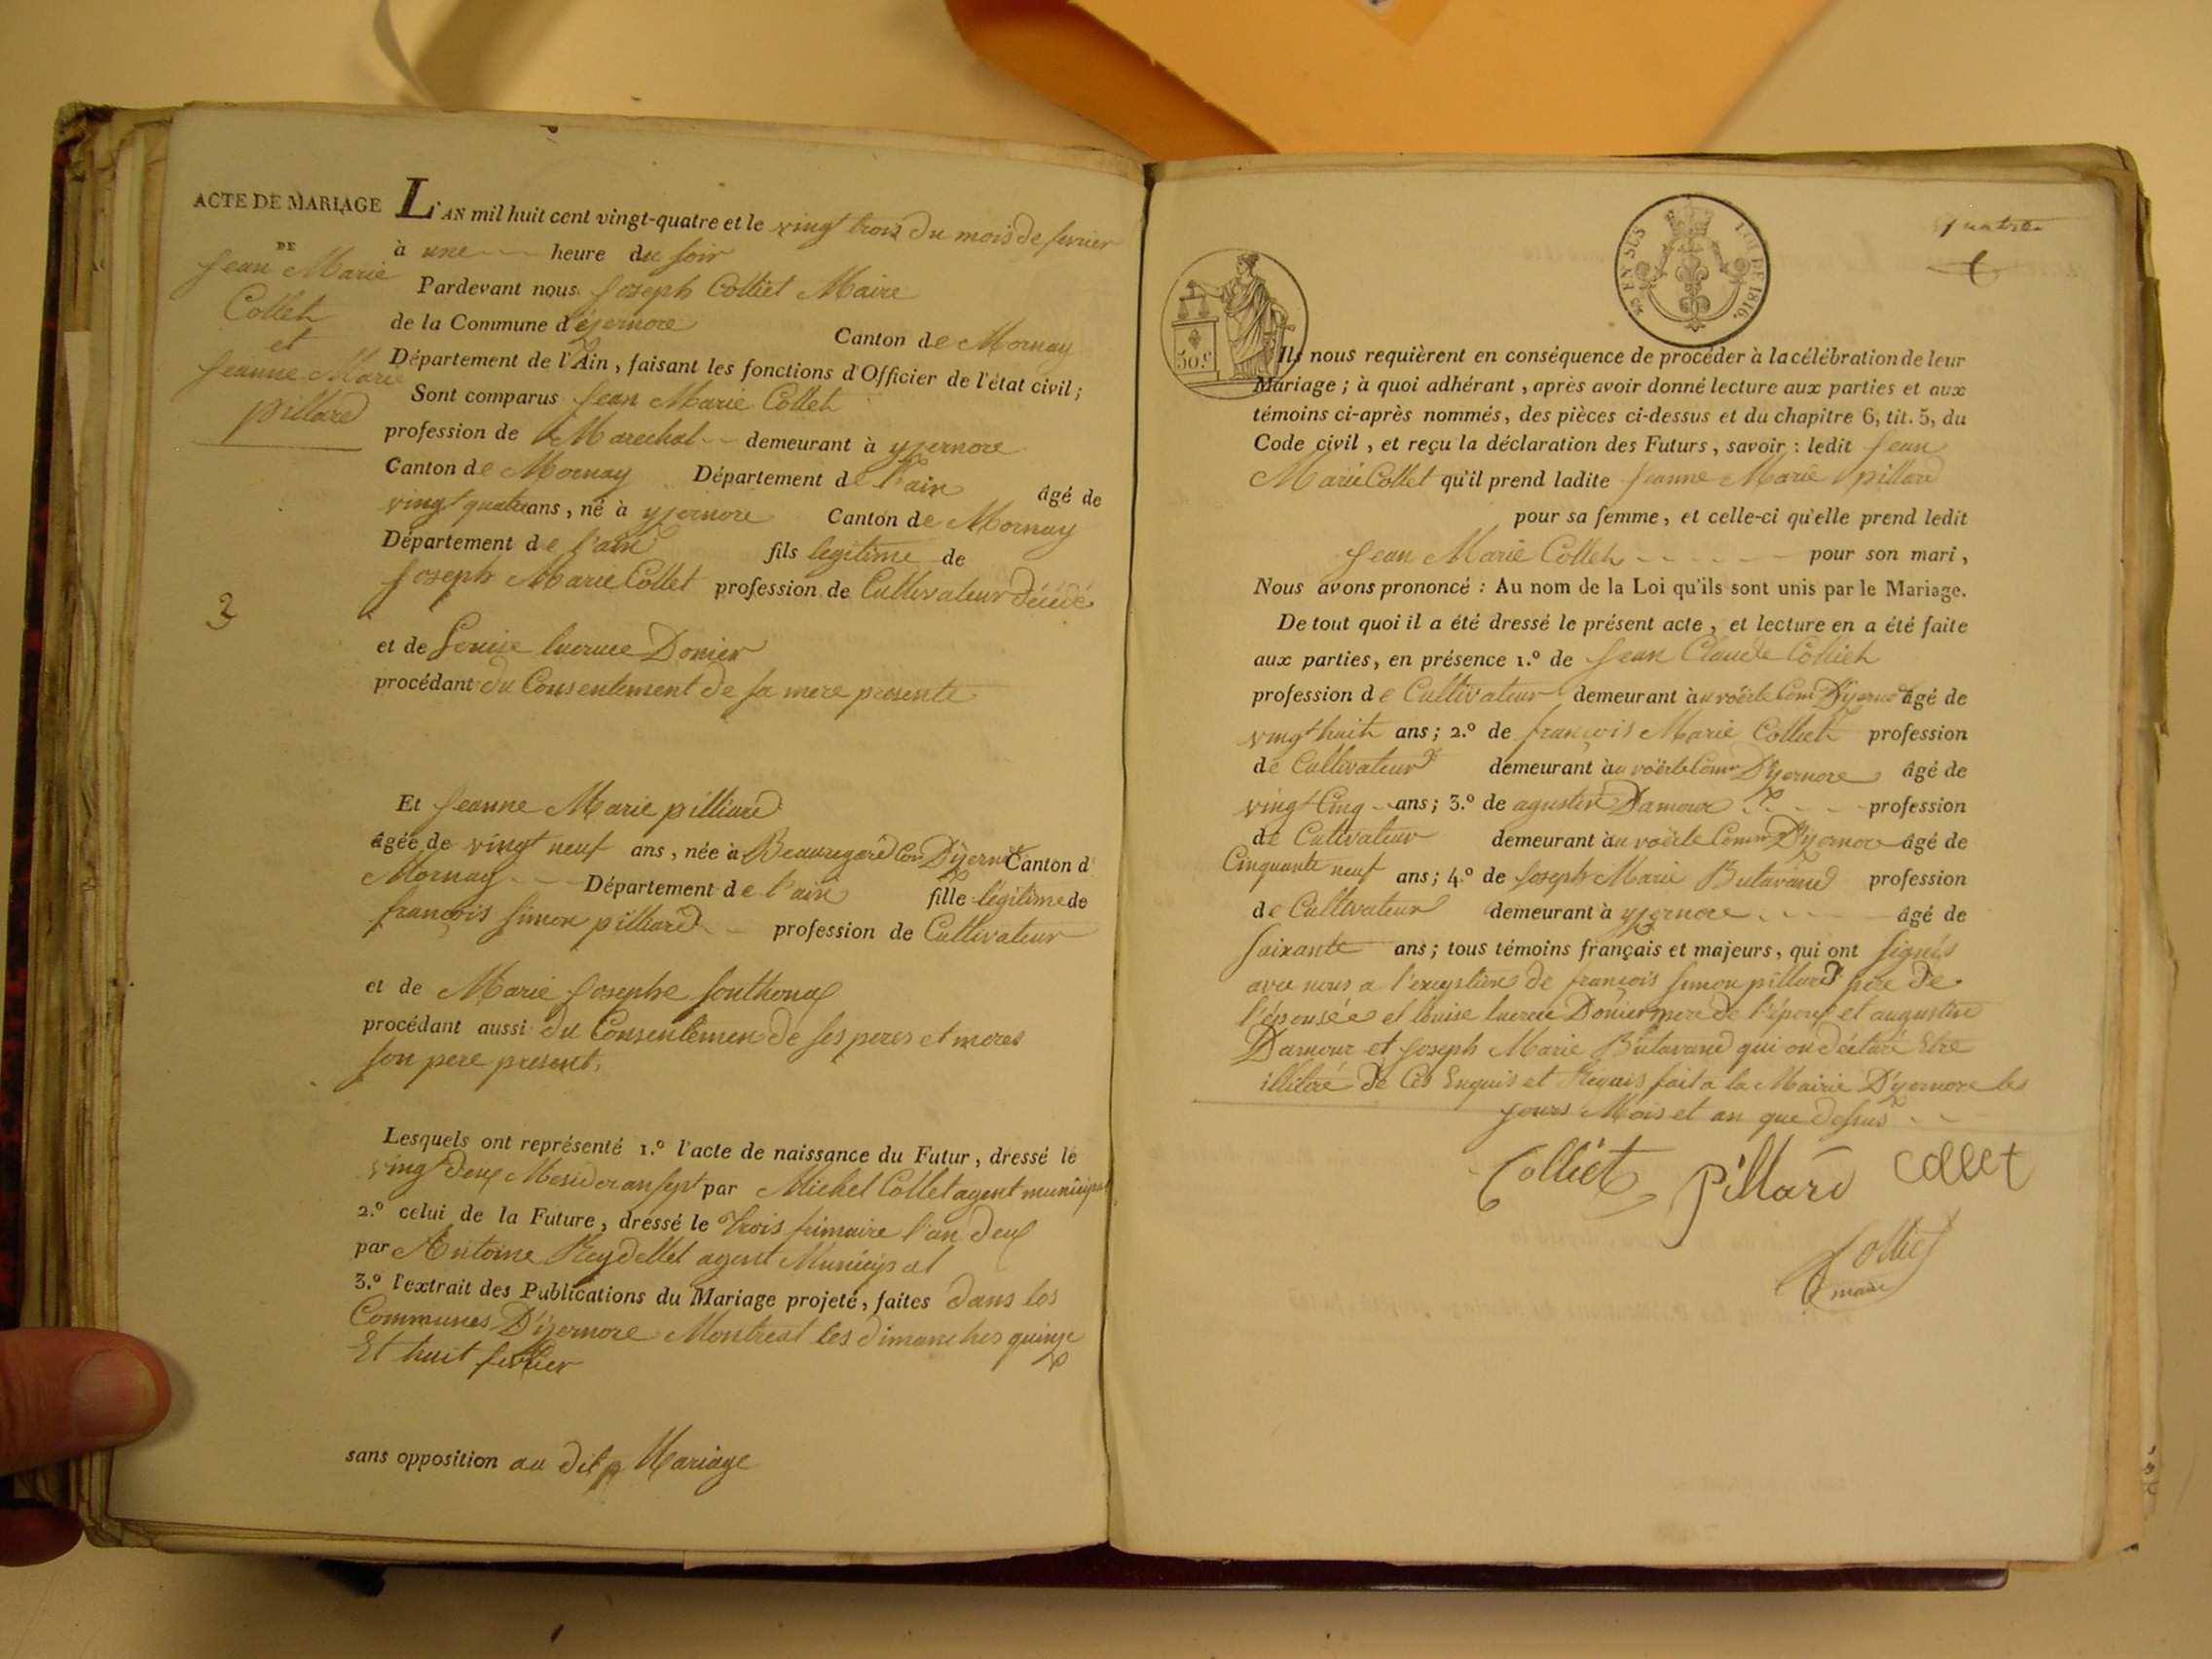 ACTE DE MARIAGE
DE
Jean Marie
Collet
et
Jeanne Marie
pillard
3
L'AN mil huit cent vingt-quatre et le vingt trois du mois de fevrier
à une heure du soir
Pardevant nous Joseph Colliet Maire
de la Commune d'yzernore Canton de Mornay
Département de l'Ain, faisant les fonctions d'Officier de l'état civil;
Sont comparus Jean Marie Collet
profession de Marechal demeurant à yzernore
Canton de Mornay Département de l'ain âgé de
vingt quatre ans, né à yzernore Canton de Mornay
Département de l'ain fils legitime de
Joseph Marie Collet profession de Cultivateur décédé
et de Louise lucrece Donier
procédant du Consentement de sa mere presente
Et Jeanne Marie pilliard
âgée de vingt neuf ans, née à Beauregard Com D'yzernore Canton d
Mornay Département de l'ain fille légitime de
françois simon pilliard profession de Cultivateur
et de Marie Josephe Southonax
procédant aussi du Consentemen de ses peres et meres
son pere present.
Lesquels ont représenté 1.º l'acte de naissance du Futur, dressé le
vingt deux Messidor an sept par Michel Collet agent municipal
2.º celui de la Future, dressé le trois frimaire l'an deux
par Antoine Reydellet agent Municipal
3.º l'extrait des Publications du Mariage projeté, faites dans les
Communes D'izernore Montreal les dimanches quinze
Et huit fevrier
sans opposition au dit Mariage
quatre
EN SUS LOI DE 1816.
50.c
Ils nous requièrent en conséquence de procéder à la célébration de leur
Mariage; à quoi adhérant, après avoir donné lecture aux parties et aux
témoins ci-après nommés, des pièces ci-dessus et du chapitre 6, tit. 5, du
Code civil, et reçu la déclaration des Futurs, savoir: ledit Jean
Marie Collet qu'il prend ladite Jeanne Marie pillard
pour sa femme, et celle-ci qu'elle prend ledit
Jean Marie Collet pour son mari,
Nous avons prononcé: Au nom de la Loi qu'ils sont unis par le Mariage.
De tout quoi il a été dressé le présent acte, et lecture en a été faite
aux parties, en présence 1.º de Jean Claude Colliet
profession de Cultivateur demeurant à Com D'yzernore âgé de
vingt huit ans; 2.º de françois Marie Colliet profession
de Cultivateur demeurant à Comn D'yzernore âgé de
vingt Cinq ans; 3.º de agustin Damour profession
de Cultivateur demeurant à Comn D'yzernore âgé de
Cinquante neuf ans; 4.º de Joseph Marie Butavand profession
de Cultivateur demeurant à yzernore âgé de
soixante ans; tous témoins français et majeurs, qui ont signés
avec nous a l'exception de françois simon pillard pere de
l'épousée et louise lucrece Donier mere de l'époux et augustin
Damour et Joseph Marie Butavand qui on déclaré Etre
illitéré de Ces Enquis et Requis fait a la Mairie D'yzernore les
jours Mois et an que dessus
Colliet pillard collet
Colliet
maire